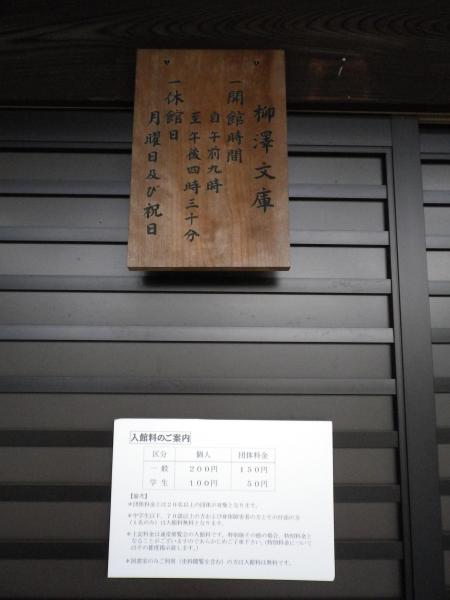 柳澤文庫
一開館時間
自午前九時
至午後四時三十分
一休館日
月曜日及び祝日
入館料のご案内
区分 個人 団体料金
一般 200円 150円
学生 100円 50円
【備考】
*団体料金とは20名以上の団体が対象となります。
*中学生以下、70歳以上の方および身体障害者の方とその付添の方
(1名のみ)は入館料無料となります。
*上記料金は通常展覧会の入館料です。特別展その他の場合、特別料金と
なることがございますのであらかじめご了承下さい。(特別料金について
はその都度掲示致します。)
*図書室のみご利用(史料閲覧を含む)の方は入館料は無料です。